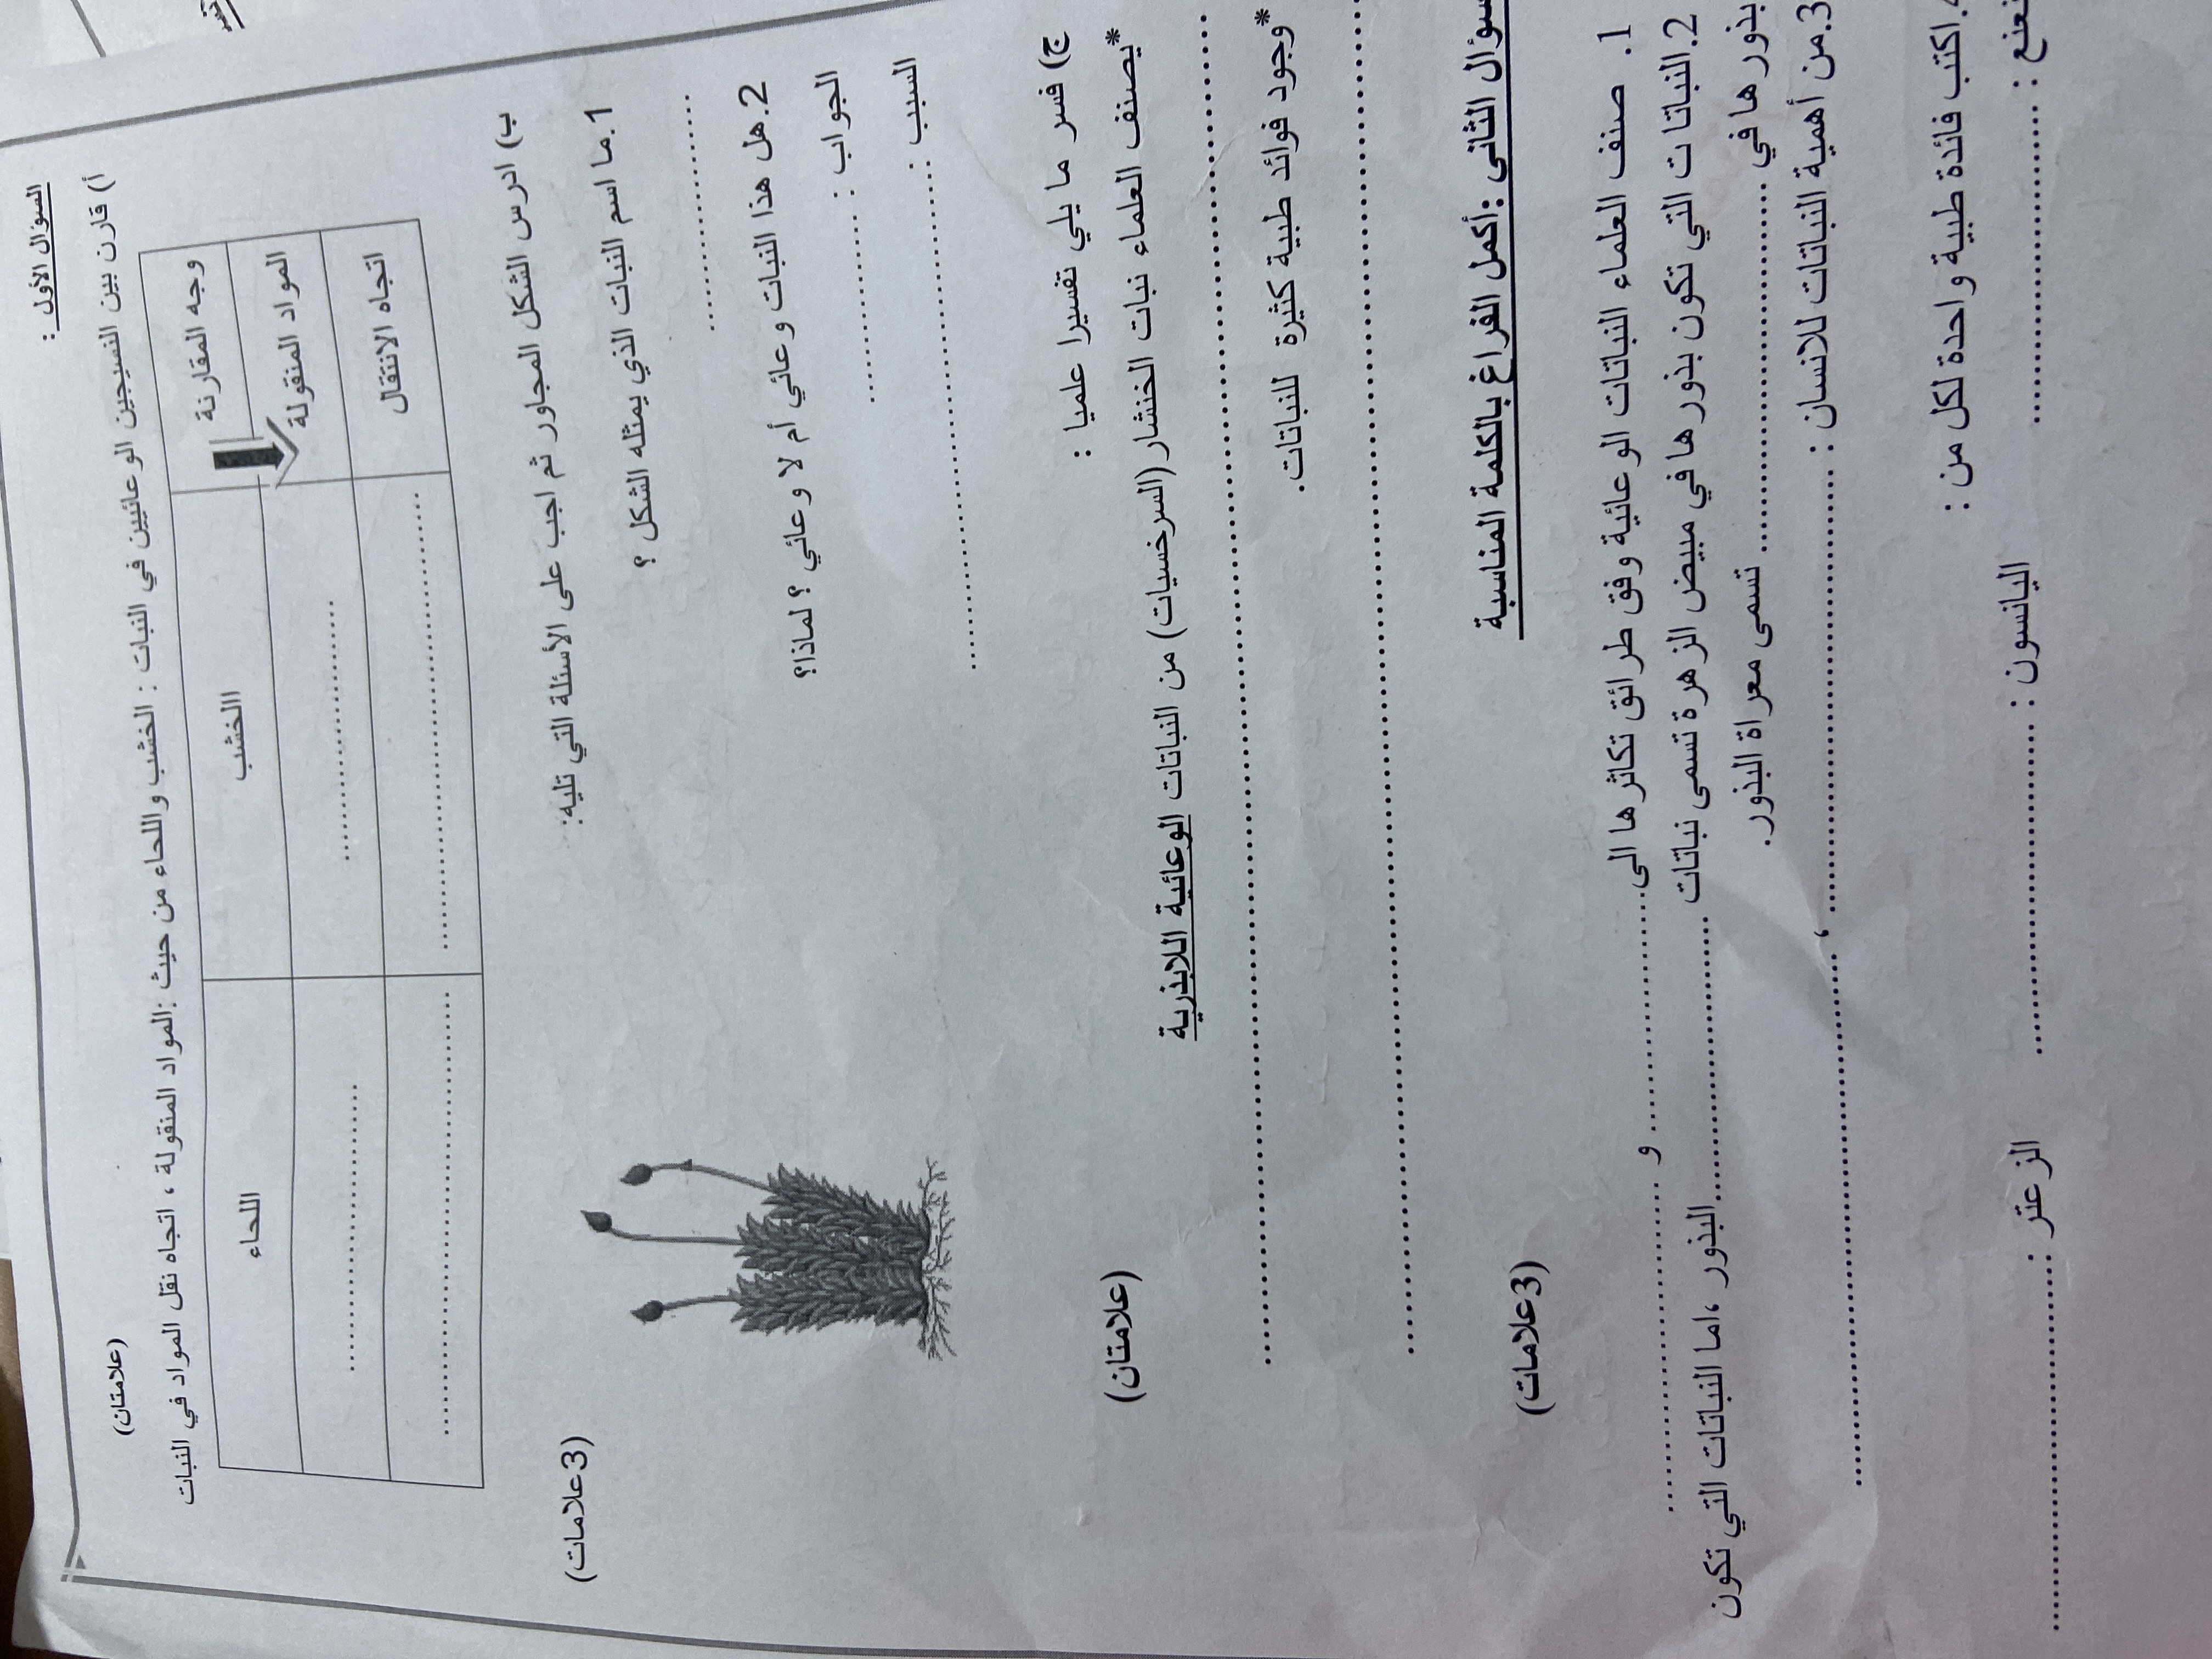 السؤال الأول :
أ) قارن بين النسيجين الوعائيين في النبات : الخشب واللحاء من حيث :المواد المنقولة ، اتجاه نقل المواد في النبات
(علامتان)
وجه المقارنة االخشب اللحاء
المواد المنقولة .................... ....................
اتجاه الانتقال .................... ....................
ب) ادرس الشكل المجاور ثم اجب على الأسئلة التي تليه: (3علامات)
1.ما اسم النبات الذي يمثله الشكل ؟
....................
2.هل هذا النبات وعائي أم لا وعائي ؟ لماذا؟
الجواب : ....................
السبب : ....................
ج) فسر ما يلي تفسيرا علميا : (علامتان)
*يصنف العلماء نبات الخنشار (السرخسيات) من النباتات الوعائية اللابذرية
....................
*وجود فوائد طبية كثيرة للنباتات.
....................
سؤال الثاني :أكمل الفراغ بالكلمة المناسبة (3علامات)
1. صنف العلماء النباتات الوعائية وفق طرائق تكاثرها الى.................... و ....................
2.النباتات التي تكون بذورها في مبيض الزهرة تسمى نباتات ....................البذور ،اما النباتات التي تكون
بذورها في .................... تسمى معراة البذور.
3.من أهمية النباتات للانسان : .................... ، ....................
اكتب فائدة طبية واحدة لكل من :
.................... اليانسون : .................... الزعتر : ....................